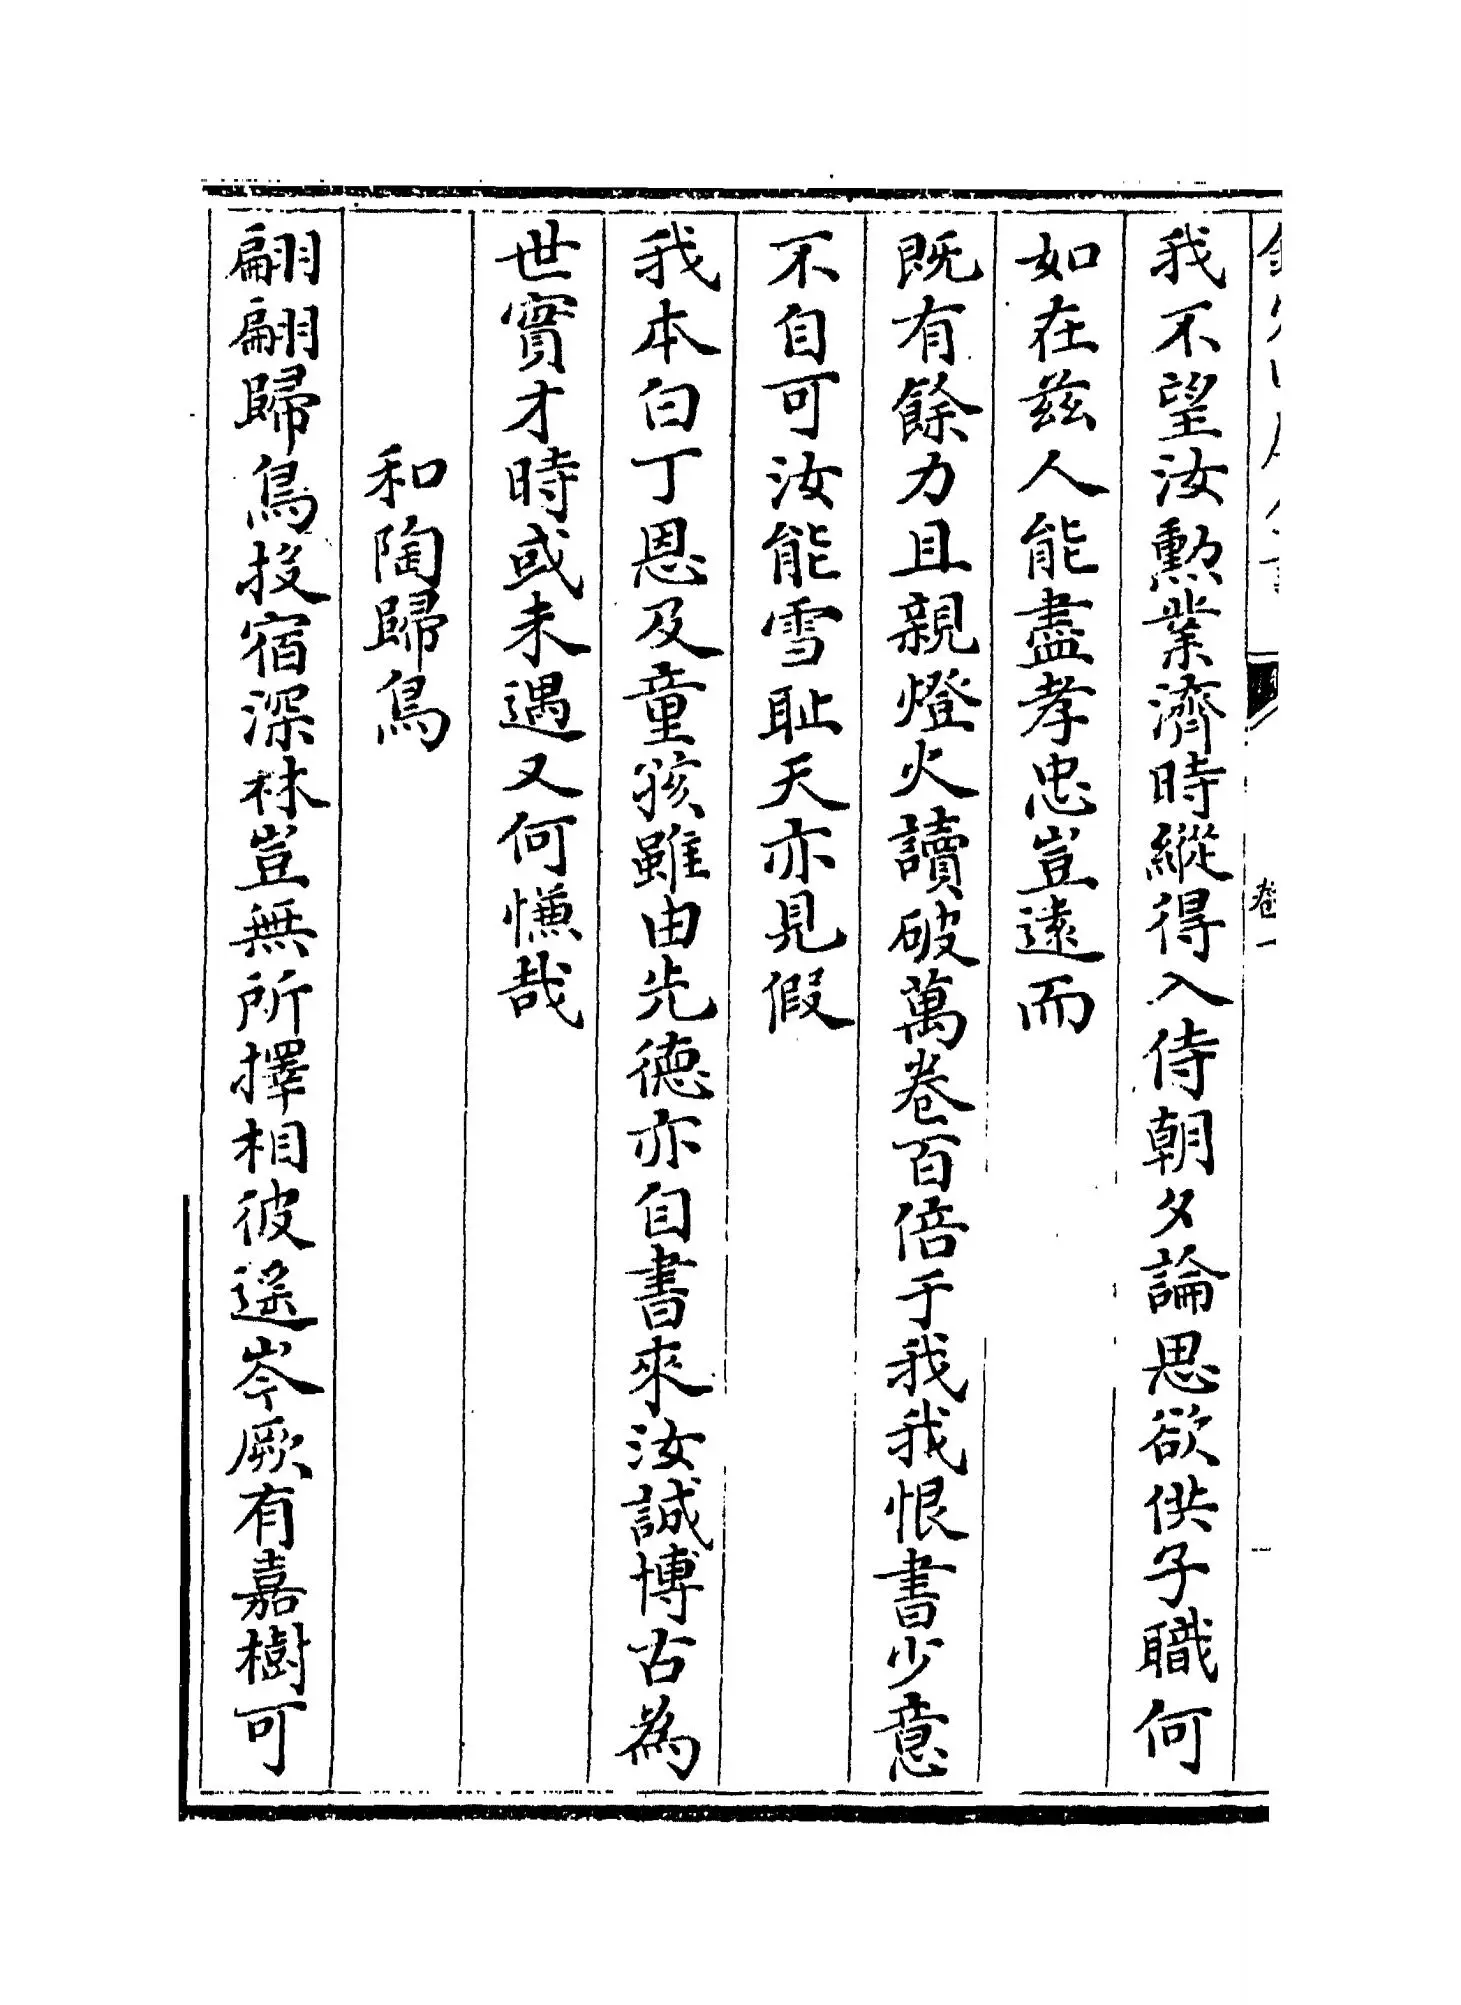 我不望汝勲業濟時縱得入侍朝夕論思欲供子職何
如在兹人能盡孝忠豈遠而
既有餘力且親燈火讀破萬卷百倍于我我恨書少意
不自可汝能雪耻天亦見假
我本白丁恩及童孩雖由先德亦自書來汝誠博古為
世實才時或未遇又何慊哉
和陶歸鳥
翩翩歸鳥投宿深林豈無所擇相彼遥岑厥有嘉樹可
卷一